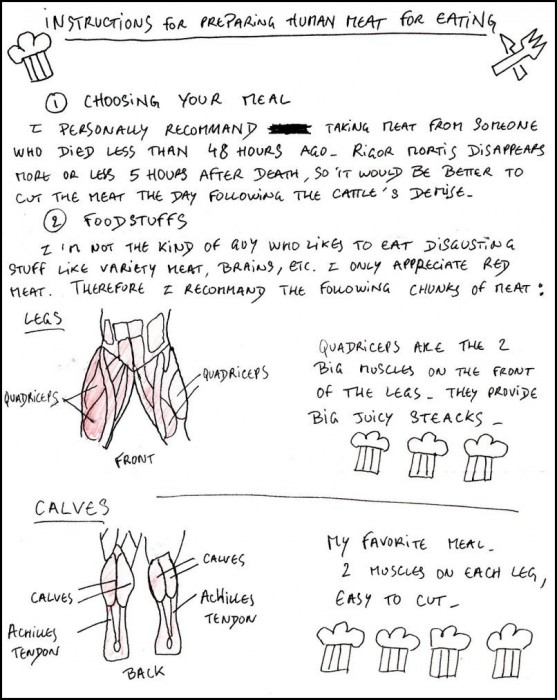 INSTRUCTIONS FOR PREPARING HUMAN MEAT FOR EATING
1 CHOOSING YOUR MEAL
I PERSONALLY RECOMMAND TAKING MEAT FROM SOMEONE
WHO DIED LESS THAN 48 HOURS AGO_ RIGOR MORTIS DISAPPEARS
MORE OR LESS 5 HOURS AFTER DEATH, SO IT WOULD BE BETTER TO
CUT THE MEAT THE DAY FOLLOWING THE CATTLE'S DEMISE_
2 FOODSTUFFS
I'M NOT THE KIND OF GUY WHO LIKES TO EAT DISGUSTING
STUFF LIKE VARIETY MEAT, BRAINS, ETC. I ONLY APPRECIATE RED
MEAT. THEREFORE I RECOMMAND THE FOLLOWING CHUNKS OF MEAT:
LEGS
QUADRICEPS
QUADRICEPS
FRONT
QUADRICEPS ARE THE 2
BIG MUSCLES ON THE FRONT
OF THE LEGS_ THEY PROVIDE
BIG JUICY STEACKS_
CALVES
CALVES
CALVES
ACHILLES
TENDON
ACHILLES
TENDON
BACK
MY FAVORITE MEAL_
2 MUSCLES ON EACH LEG,
EASY TO CUT_